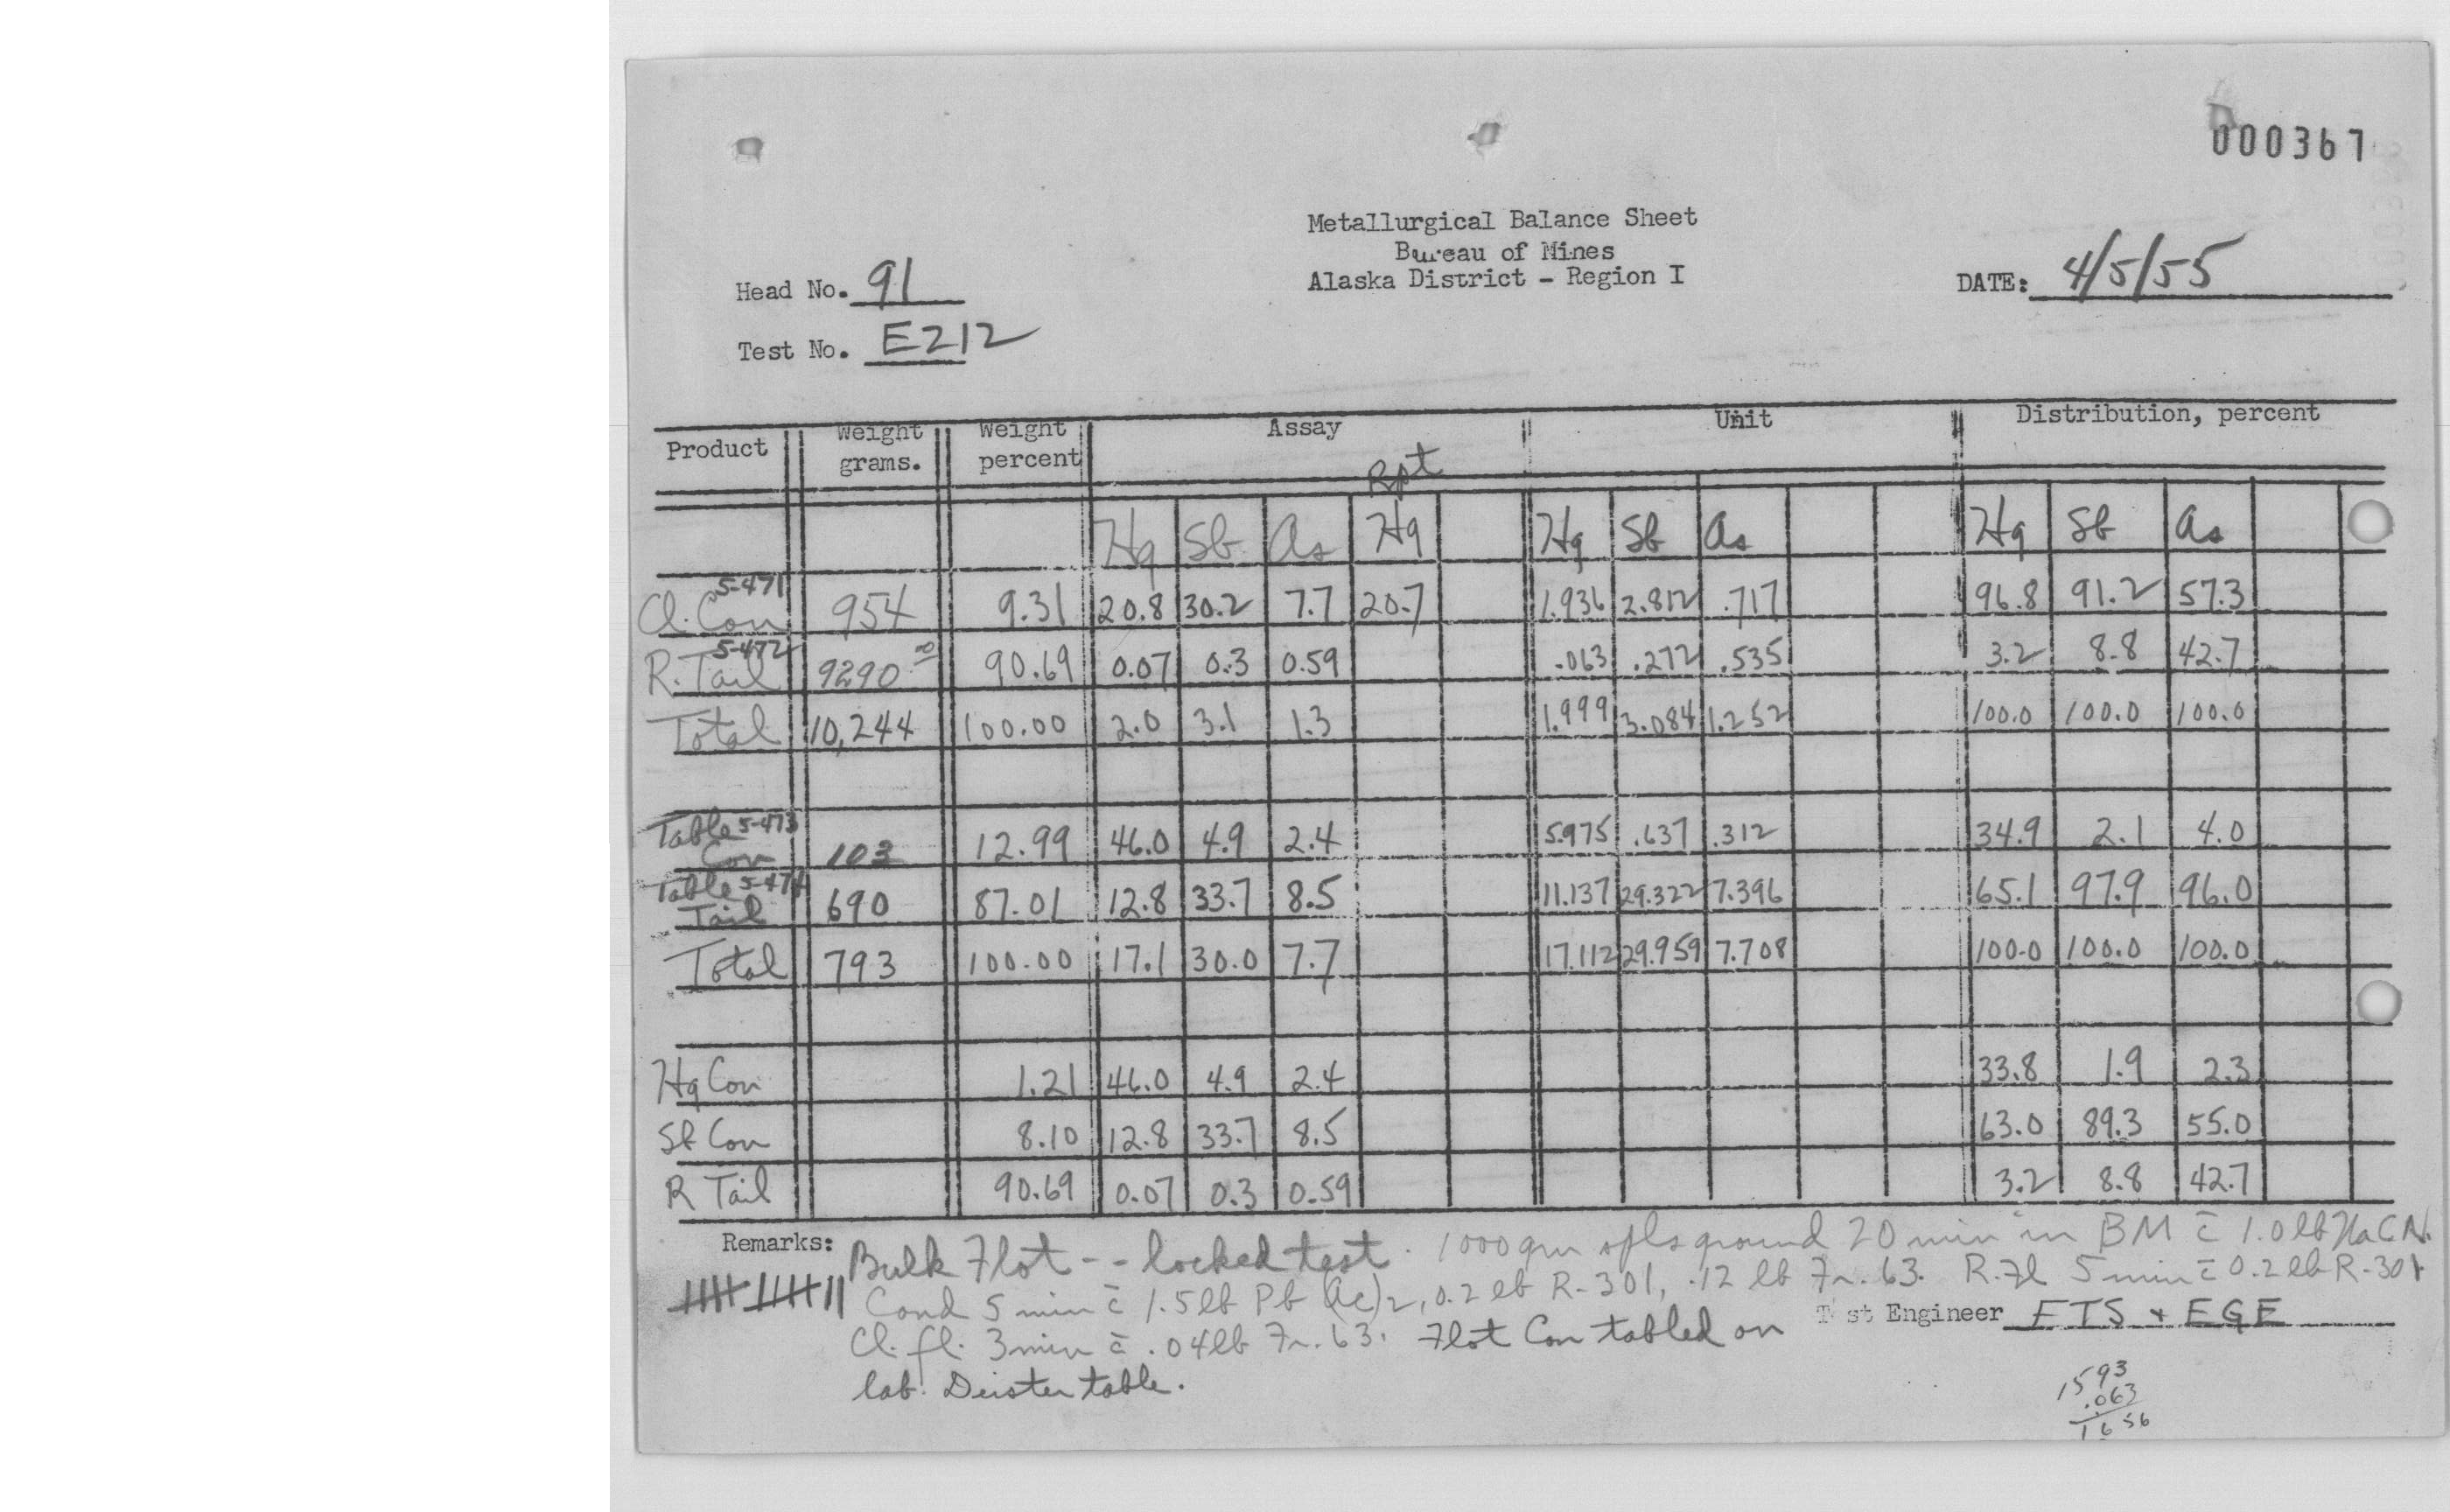 000367
Metallurgical Balance Sheet
Bureau of Mines
Alaska District - Region I
Head No. 91
DATE: 4/5/55
Test No. E212
Product Weight grams. Weight percent Assay Unit Distribution, percent
Rpt
Hg Sb As Hg Hg Sb As Hg Sb As
Cl. Con 5-471 954 9.31 20.8 30.2 7.7 20.7 1.936 2.812 .717 96.8 91.2 57.3
R. Tail 5-472 9290 90.69 0.07 0.3 0.59 .063 .272 .535 3.2 8.8 42.7
Total 10,244 100.00 2.0 3.1 1.3 1.999 3.084 1.252 100.0 100.0 100.0
Table Con 5-473 103 12.99 46.0 4.9 2.4 5.975 .637 .312 34.9 2.1 4.0
Table Tail 5-474 690 87.01 12.8 33.7 8.5 11.137 29.322 7.396 65.1 97.9 96.0
Total 793 100.00 17.1 30.0 7.7 17.112 29.959 7.708 100.0 100.0 100.0
Hg Con 1.21 46.0 4.9 2.4 33.8 1.9 2.3
Sb Con 8.10 12.8 33.7 8.5 63.0 89.3 55.0
R Tail 90.69 0.07 0.3 0.59 3.2 8.8 42.7
Remarks: Bulk Flot -- locked test. 1000 gm spls ground 20 min in BM c̄ 1.0 lb NaCN.
Cond 5 min c̄ 1.5 lb Pb(Ac)2, 0.2 lb R-301, .12 lb Fr. 63. R. Fl 5 min c̄ 0.2 lb R-301
Cl. fl. 3 min c̄ .04 lb Fr. 63. Flot Con tabled on
lab. Deister table.
Test Engineer FTS + EGE
1593
.063
1656